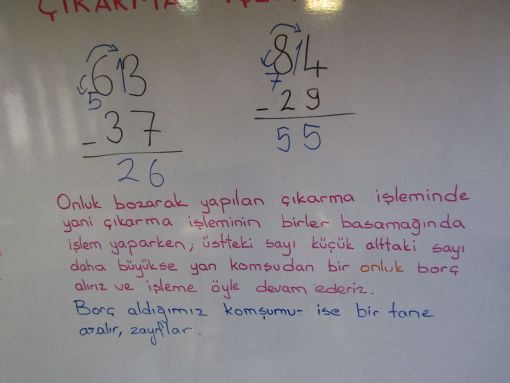 ÇIKARMA İŞLEMİ
613 814
5 7
- 37 - 29
26 55
Onluk bozarak yapılan çıkarma işleminde
yani çıkarma işleminin birler basamağında
işlem yaparken, üstteki sayı küçük alttaki sayı
daha büyükse yan komşudan bir onluk borç
alırız ve işleme öyle devam ederiz.
Borç aldığımız komşumuz ise bir tane
azalır, zayıflar.